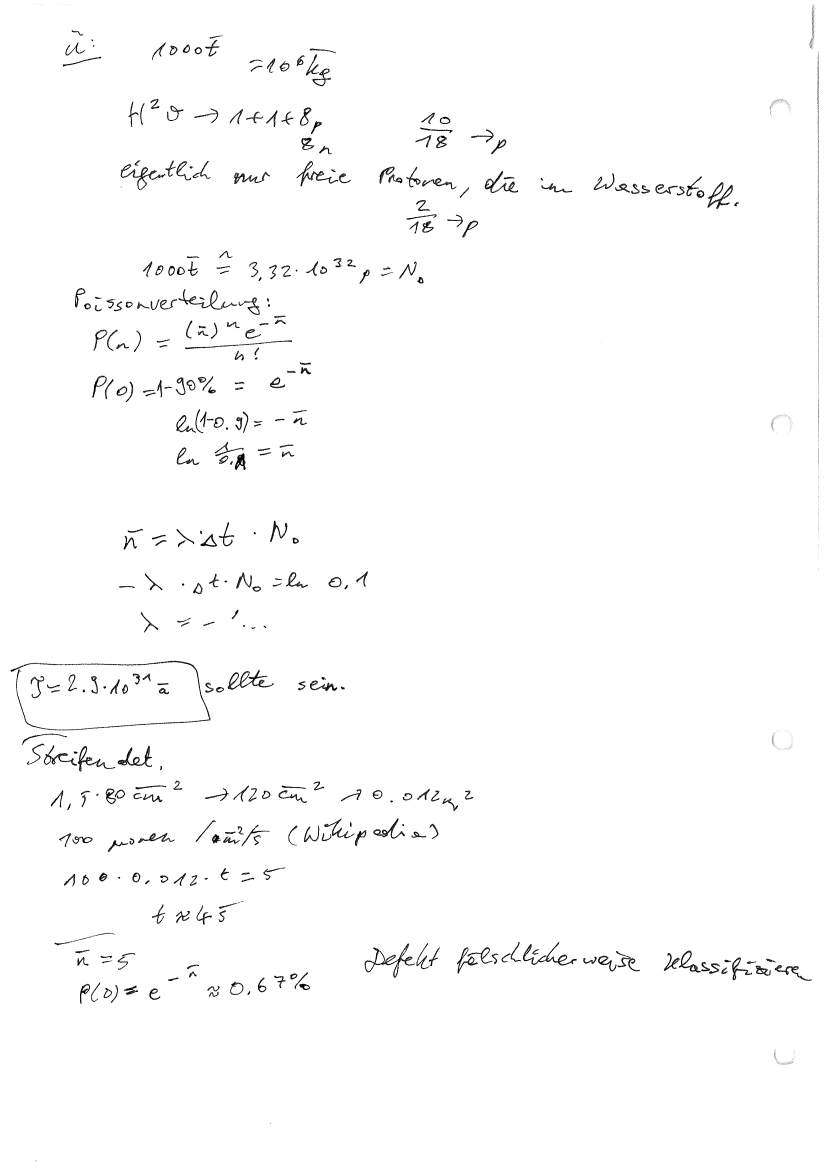 Ü: 1000t = 10⁶ kg
H²O → 1+1+8p 10/18 → p
8n
eigentlich nur freie Protonen, die im Wasserstoff.
2/18 → p
1000t ≙ 3,32·10³² p = N₀
Poissonverteilung:
P(n) = (n̄)ⁿ e^(-n̄) / n!
P(0) = 1-90% = e^(-n̄)
ln(1-0.9) = -n̄
ln 1/0.1 = n̄
n̄ = λ·Δt · N₀
-λ · Δt · N₀ = ln 0,1
λ = - ...
τ = 2.9·10³¹ a sollte sein.
Streifendet.
1,5·80 cm² → 120 cm² → 0.012 m²
100 myonen /m²/s (Wikipedia)
100 · 0,012 · t = 5
t ≈ 4s
n̄ = 5
P(0) = e^(-n̄) ≈ 0.67% Defekt fälschlicherweise klassifizieren